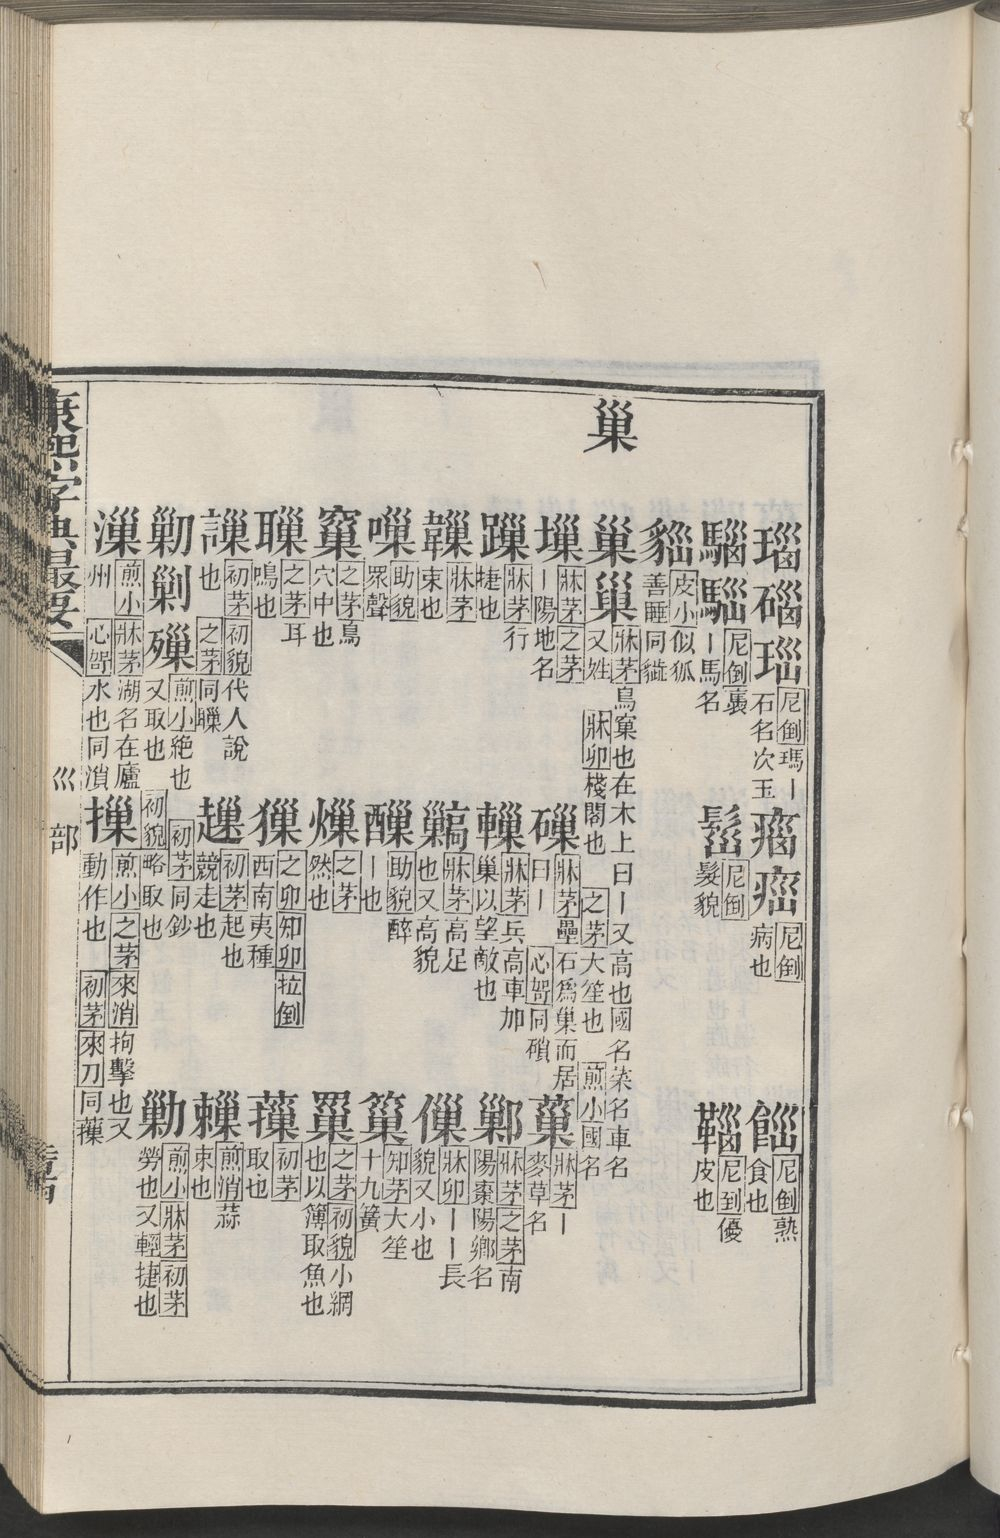 瑙碯𤥀尼倒瑪丨石名次玉
㛴尼倒病也
尼倒熟食也
尼倒褭丨馬名
髷尼倒髮貌
尼到優皮也
皮小似狐善睡同貓
巢
巢巢牀茅鳥窠也在木上曰丨又高也國名菜名車名又姓
牀卯棧閣也
之茅大笙也
煎小國名
牀茅之茅丨陽地名
牀茅壘石爲巢而居曰丨
心㗾同䂹
牀茅丨麥草名
躁牀茅行捷也
轈牀茅兵高車加巢以望敵也
鄛牀茅之茅南陽棗陽鄉名
牀茅束也
牀茅高足也又高貌
僺牀卯丨丨長貌又小也
嘄助貌眾聲
助貌醉丨也
知茅大笙十九簧
之茅鳥穴中也
之茅然也
罺之茅初貌小網也以簿取魚也
之茅耳鳴也
之卯知卯拉倒西南夷種
初茅取也
初茅初貌代人說也
之茅同
初茅起也競走也
煎消蒜束也
勦剿煎小絶也又取也
初貌略取也
初茅同鈔
勦煎小牀茅初茅勞也又輕捷也
漅煎小牀茅湖名在廬州
心㗾水也同溑
摷煎小之茅來消拘擊也又動作也
初茅來刀同
康熙字典最要
巛部